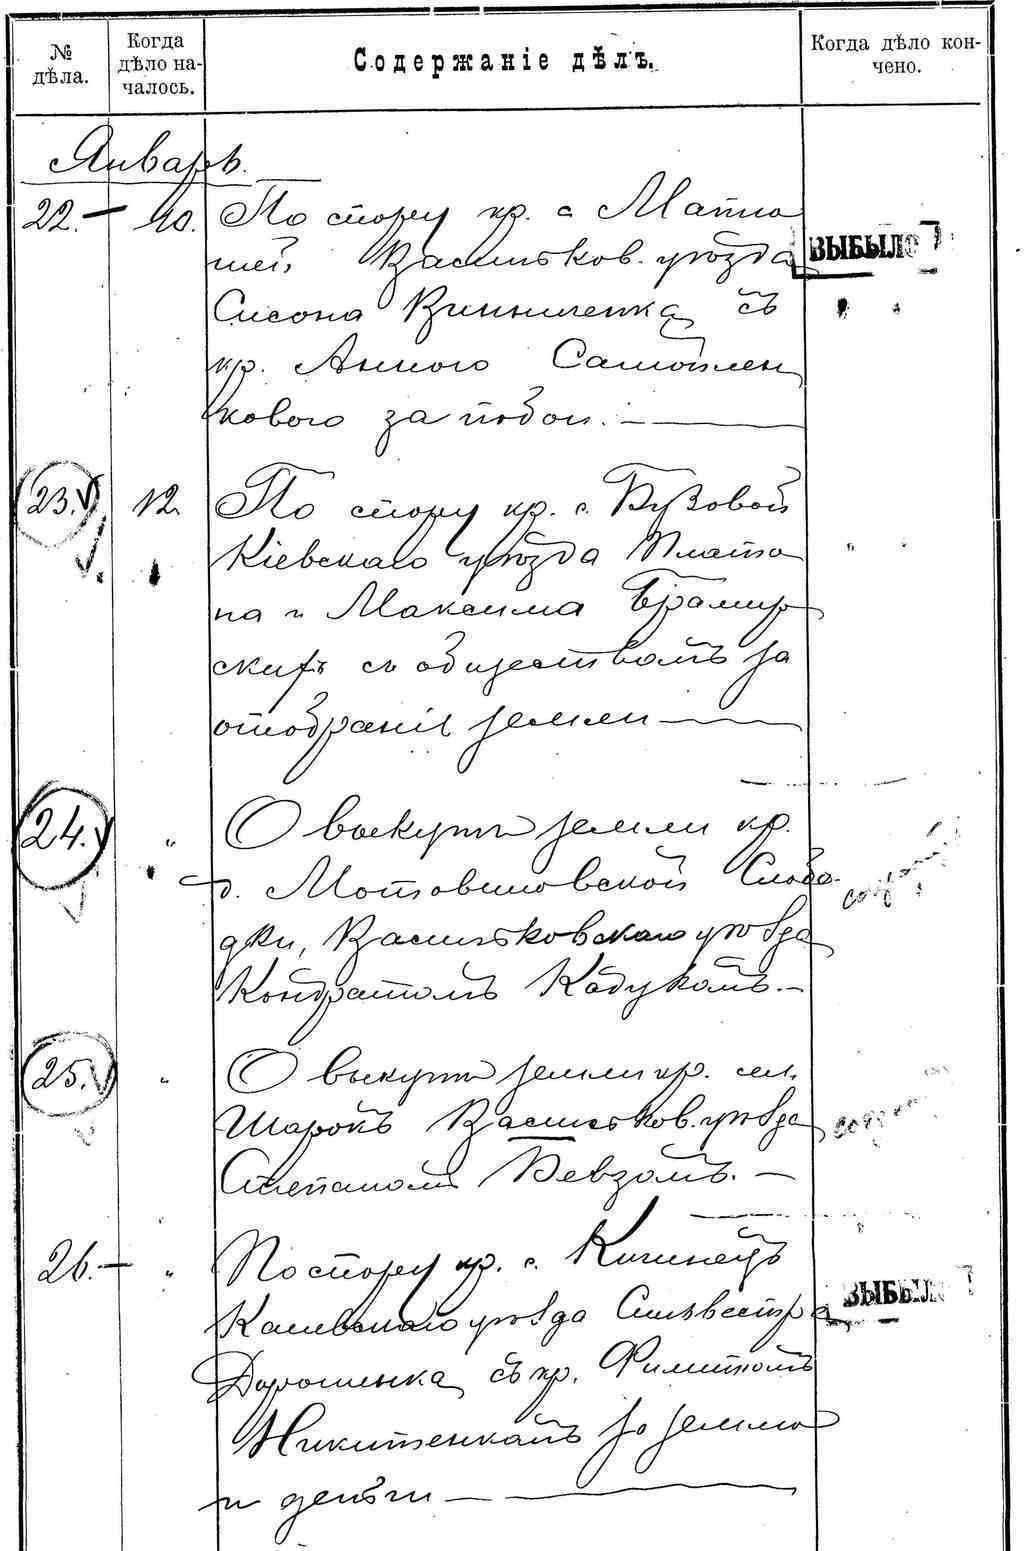 № дѣла.
Когда дѣло на-
чалось.
Содержаніе дѣлъ.
Когда дѣло кон-
чено.
Январь.
22.— 10. По спору кр. с. Матю
шей Васильков. уѣзда
ВЫБЫЛО
Сисона Винниченка съ
кр. Анною Самойлен
ковою за побои.—
23. 12. По спору кр. с. Бузовой
Кіевскаго уѣзда Плато
на и Максима
скихъ съ обществомъ за
отобраніе земли—
24. „ О выкупѣ земли кр.
д. Мотовиловской Слобо-
дки, Васильковскаго уѣзда
Кондратомъ Кабукомъ.—
25. „ О выкупѣ земли кр. сел.
Шарокъ Васильков. уѣзда
Степаномъ Бевзомъ.—
26.— „ По спору кр. с.
Каневскаго уѣзда Сильвестра
ВЫБЫЛО
Дорошенка съ кр. Филиппомъ
Никитенкомъ за землю
и деньги—